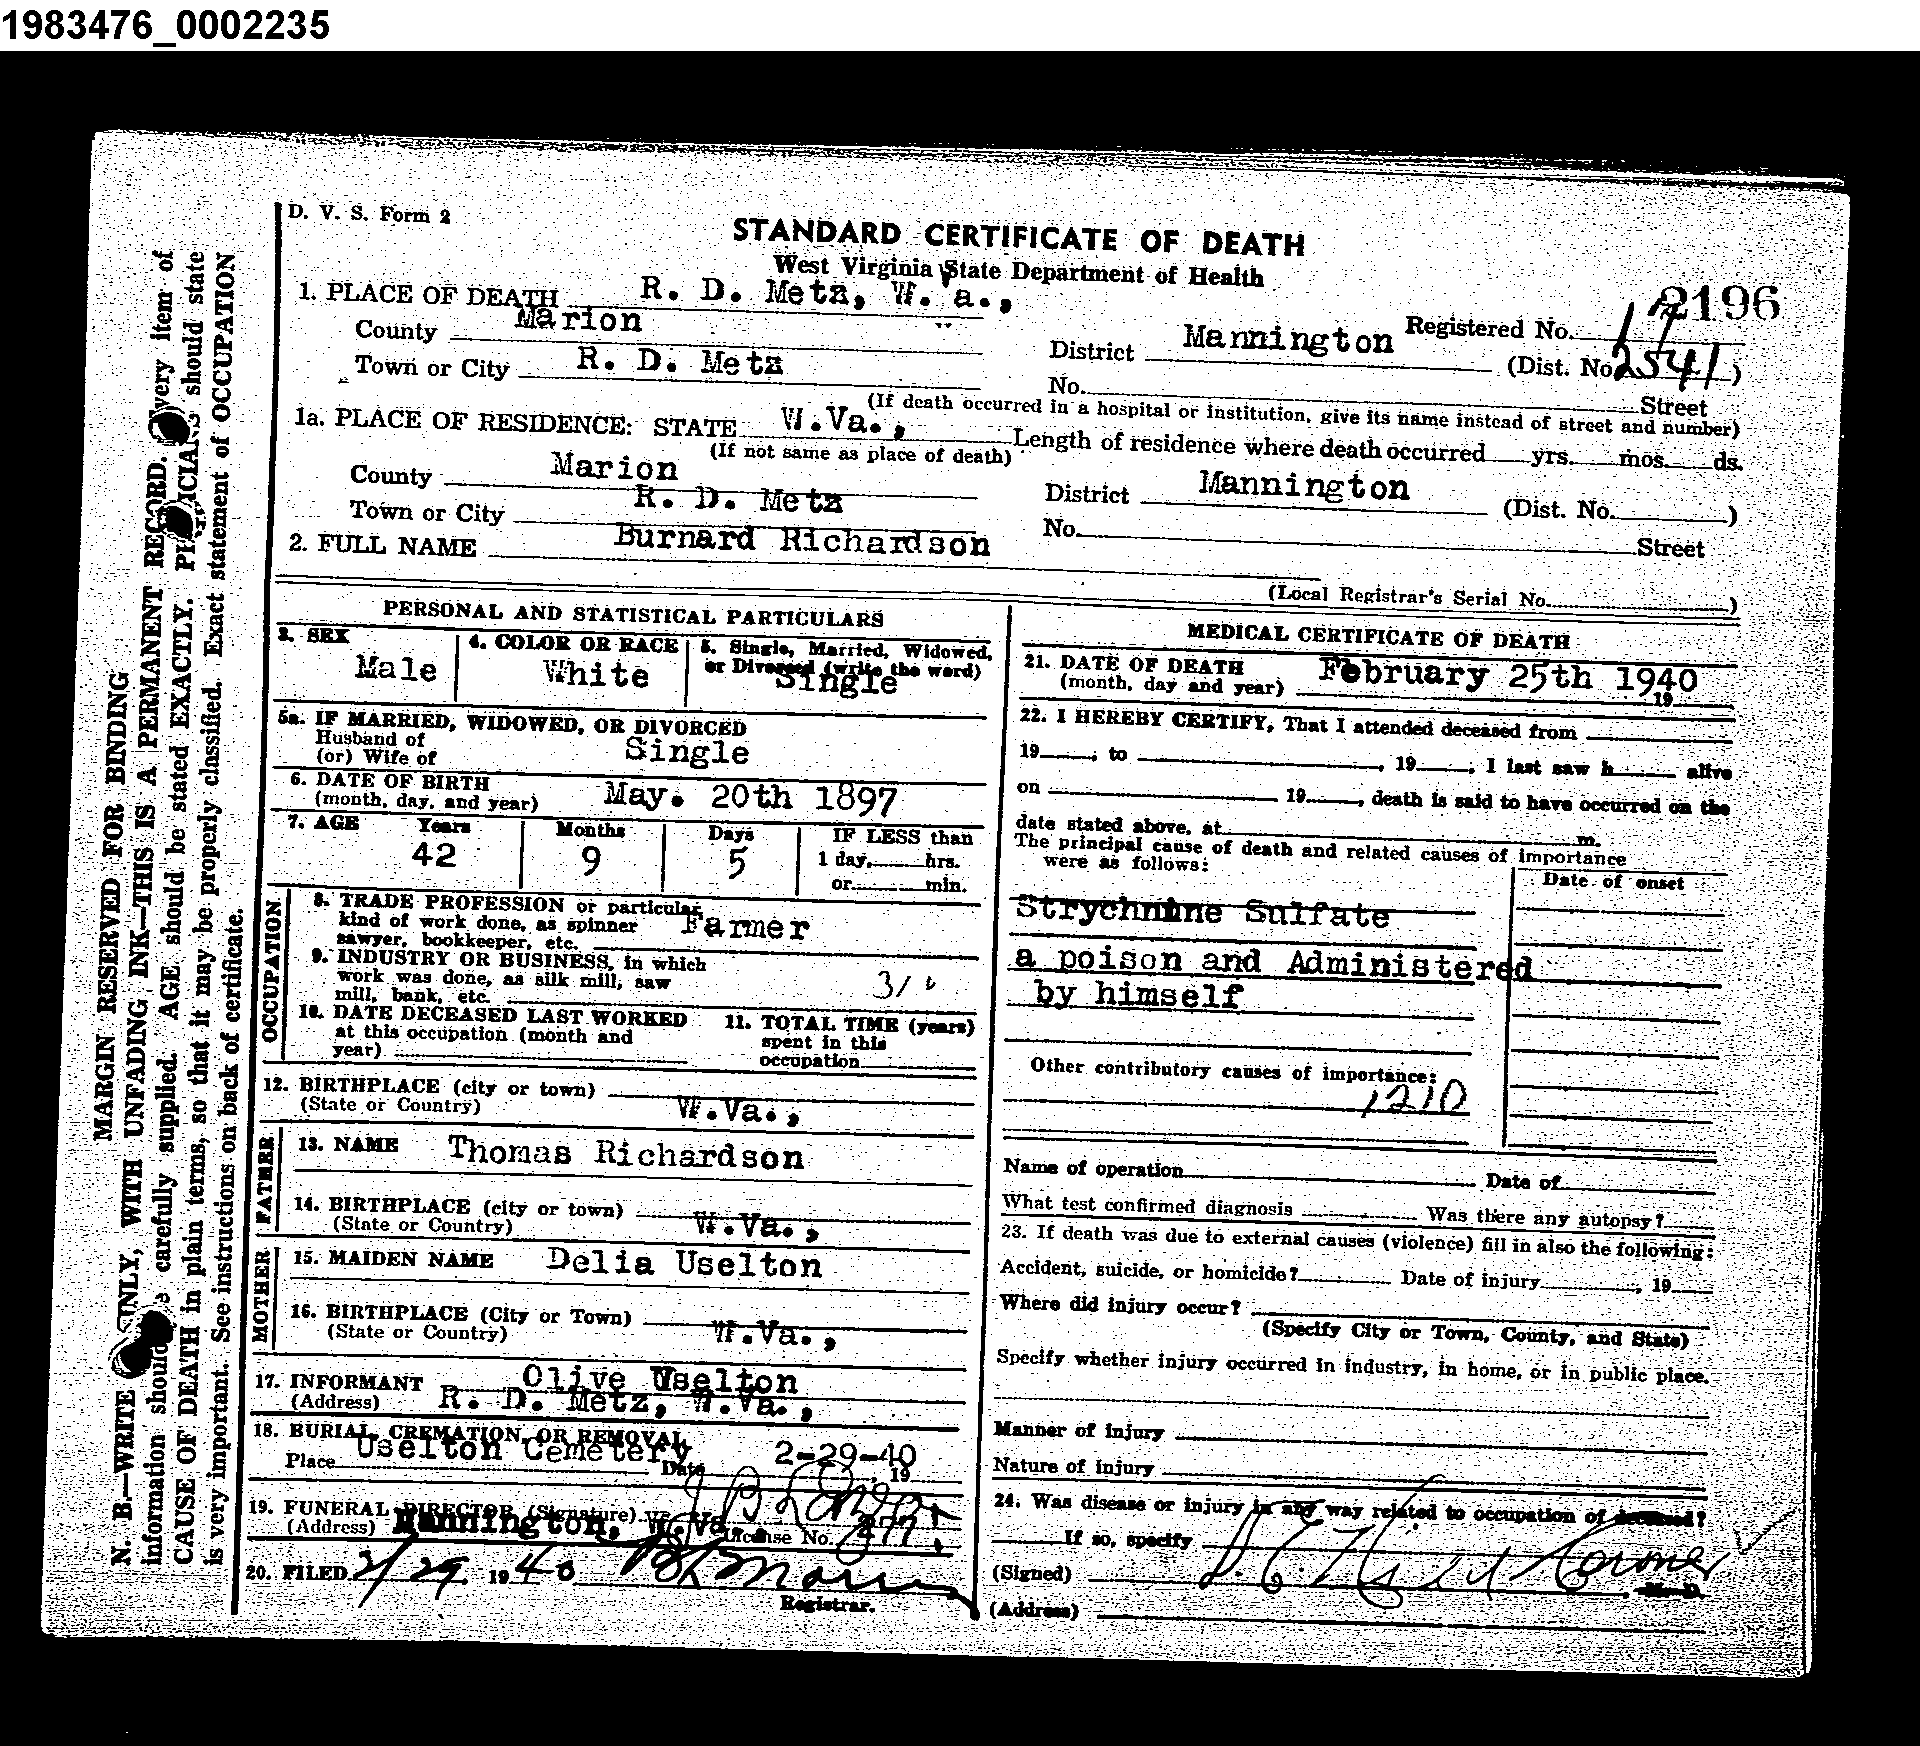 1983476_0002235
D. V. S. Form 2
STANDARD CERTIFICATE OF DEATH
West Virginia State Department of Health
2196
1. PLACE OF DEATH R. D. Metz, W. Va.,
County Marion
Registered No. 17
District Mannington (Dist. No. 2541)
Town or City R. D. Metz
No. Street
(If death occurred in a hospital or institution, give its name instead of street and number)
1a. PLACE OF RESIDENCE: STATE W.Va.,
(If not same as place of death)
Length of residence where death occurred yrs. mos. ds.
County Marion
District Mannington (Dist. No. )
Town or City R. D. Metz
No. Street
2. FULL NAME Burnard Richardson
(Local Registrar's Serial No. )
PERSONAL AND STATISTICAL PARTICULARS
3. SEX
Male
4. COLOR OR RACE
White
5. Single, Married, Widowed,
or Divorced (write the word)
Single
5a. IF MARRIED, WIDOWED, OR DIVORCED
Husband of
(or) Wife of Single
6. DATE OF BIRTH
(month, day, and year) May. 20th 1897
7. AGE Years Months Days IF LESS than
42 9 5 1 day, hrs.
or min.
OCCUPATION
8. TRADE PROFESSION or particular
kind of work done, as spinner
sawyer, bookkeeper, etc. Farmer
9. INDUSTRY OR BUSINESS, in which
work was done, as silk mill, saw
mill, bank, etc.
10. DATE DECEASED LAST WORKED
at this occupation (month and
year)
11. TOTAL TIME (years)
spent in this
occupation
12. BIRTHPLACE (city or town)
(State or Country) W.Va.,
FATHER
13. NAME Thomas Richardson
14. BIRTHPLACE (city or town)
(State or Country) W.Va.,
MOTHER
15. MAIDEN NAME Delia Uselton
16. BIRTHPLACE (City or Town)
(State or Country) W.Va.,
17. INFORMANT Olive Uselton
(Address) R. D. Metz, W.Va.,
18. BURIAL, CREMATION, OR REMOVAL
Place Uselton Cemetery Date 2-29-40, 19
19. FUNERAL DIRECTOR (Signature)
(Address) Mannington, W.Va., License No.
20. FILED 2/29 1940
Registrar.
MEDICAL CERTIFICATE OF DEATH
21. DATE OF DEATH
(month, day and year) February 25th 1940
19
22. I HEREBY CERTIFY, That I attended deceased from
19 , to , 19 , I last saw h alive
on 19 , death is said to have occurred on the
date stated above, at m.
The principal cause of death and related causes of importance
were as follows:
Date of onset
Strychnine Sulfate
a poison and Administered
by himself
Other contributory causes of importance:
1210
Name of operation Date of
What test confirmed diagnosis Was there any autopsy?
23. If death was due to external causes (violence) fill in also the following:
Accident, suicide, or homicide? Date of injury , 19
Where did injury occur?
(Specify City or Town, County, and State)
Specify whether injury occurred in industry, in home, or in public place.
Manner of injury
Nature of injury
24. Was disease or injury in any way related to occupation of deceased?
If so, specify
(Signed) Coroner M. D.
(Address)
MARGIN RESERVED FOR BINDING
N. B.—WRITE ONLY, WITH UNFADING INK—THIS IS A PERMANENT RECORD. Every item of
information should be carefully supplied. AGE should be stated EXACTLY. PHYSICIANS should state
CAUSE OF DEATH in plain terms, so that it may be properly classified. Exact statement of OCCUPATION
is very important. See instructions on back of certificate.